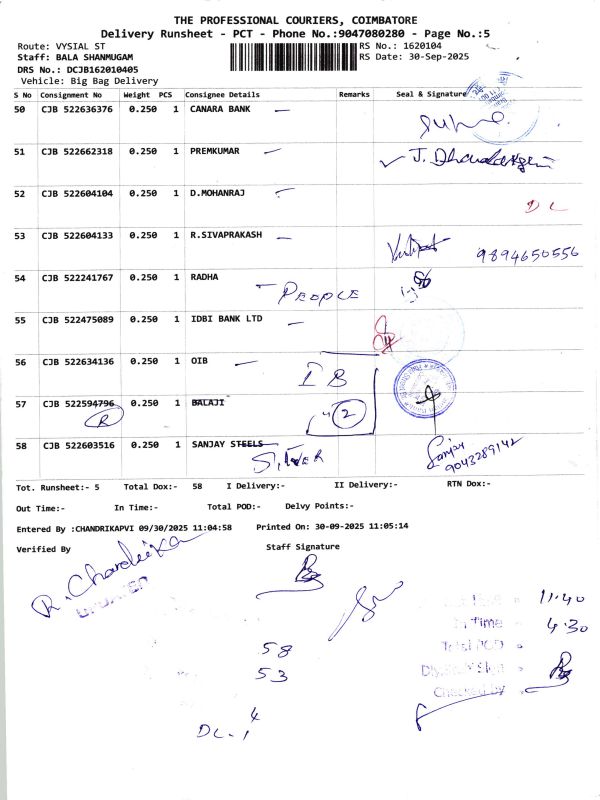 THE PROFESSIONAL COURIERS, COIMBATORE
Delivery Runsheet - PCT - Phone No.:9047080280 - Page No.:5
Route: VYSIAL ST RS No.: 1620104
Staff: BALA SHANMUGAM RS Date: 30-Sep-2025
DRS No.: DCJB162010405
Vehicle: Big Bag Delivery
S No Consignment No Weight PCS Consignee Details Remarks Seal & Signature
50 CJB 522636376 0.250 1 CANARA BANK
51 CJB 522662318 0.250 1 PREMKUMAR
52 CJB 522604104 0.250 1 D.MOHANRAJ DL
53 CJB 522604133 0.250 1 R.SIVAPRAKASH 9894650556
54 CJB 522241767 0.250 1 RADHA
PEOPLE
55 CJB 522475089 0.250 1 IDBI BANK LTD
56 CJB 522634136 0.250 1 OIB
IB
57 CJB 522594796 0.250 1 BALAJI
R 2
58 CJB 522603516 0.250 1 SANJAY STEELS Sanjay
SILVER 9043289142
Tot. Runsheet:- 5 Total Dox:- 58 I Delivery:- II Delivery:- RTN Dox:-
Out Time:- In Time:- Total POD:- Delvy Points:-
Entered By :CHANDRIKAPVI 09/30/2025 11:04:58 Printed On: 30-09-2025 11:05:14
Verified By Staff Signature
R. Chandrika
11.40
In Time 4.30
Total POD
58
53
Checked by
DL - 4